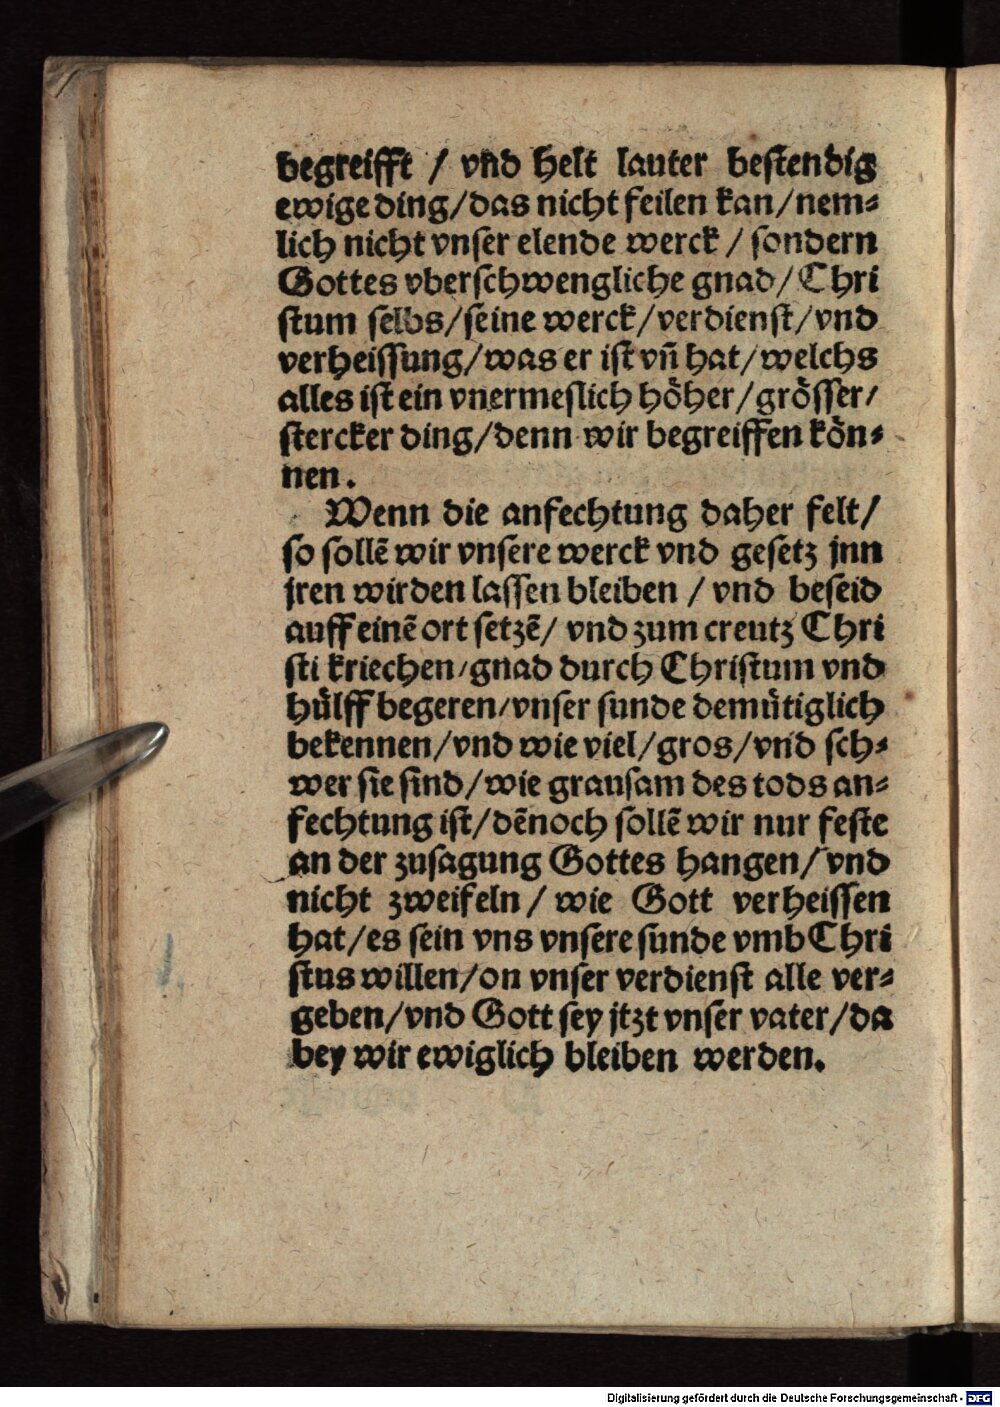 begreifft / vnd helt lauter bestendig
ewige ding/das nicht feilen kan/nem⸗
lich nicht vnser elende werck / sondern
Gottes vberschwengliche gnad/Chri
stum selbs/seine werck/verdienst/vnd
verheissung/was er ist vn̄ hat/welchs
alles ist ein vnermeslich hoͤher/groͤsser/
stercker ding/denn wir begreiffen koͤn⸗
nen.
Wenn die anfechtung daher felt/
so sollē wir vnsere werck vnd gesetz jnn
jren wirden lassen bleiben / vnd beseid
auff einē ort setzē/ vnd zum creutz Chri
sti kriechen/gnad durch Christum vnd
huͤlff begeren/vnser sunde demuͤtiglich
bekennen/vnd wie viel/gros/vnd sch⸗
wer sie sind/wie grausam des tods an⸗
fechtung ist/dēnoch sollē wir nur feste
an der zusagung Gottes hangen/vnd
nicht zweifeln/ wie Gott verheissen
hat/es sein vns vnsere sunde vmb Chri
stus willen/on vnser verdienst alle ver⸗
geben/vnd Gott sey jtzt vnser vater/da
bey wir ewiglich bleiben werden.
Digitalisierung gefördert durch die Deutsche Forschungsgemeinschaft - DFG